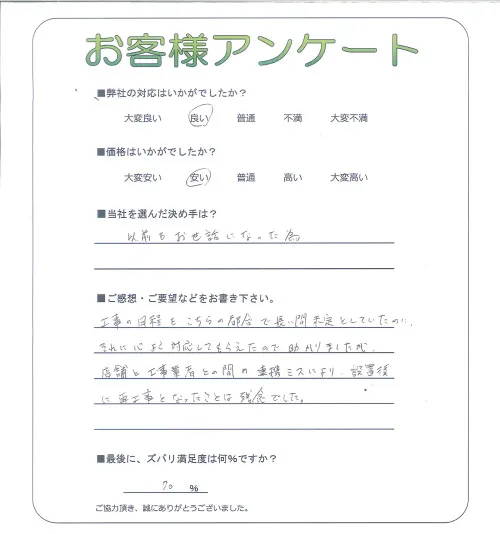 お客様アンケート
■弊社の対応はいかがでしたか？
大変良い 良い 普通 不満 大変不満
■価格はいかがでしたか？
大変安い 安い 普通 高い 大変高い
■当社を選んだ決め手は？
以前もお世話になった為
■ご感想・ご要望などをお書き下さい。
工事の日程をこちらの都合で長い間未定としていたのに、
それに心よく対応してもらえたので助かりましたが、
店舗と工事業者との間の連携ミスにより、設置後
に再工事となったことは残念でした。
■最後に、ズバリ満足度は何％ですか？
70 ％
ご協力頂き、誠にありがとうございました。